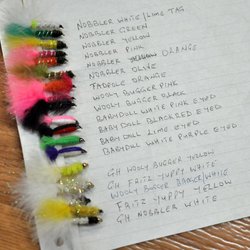 NOBBLER WHITE/LIME TAG
NOBBLER GREEN
NOBBLER YELLOW
NOBBLER PINK
NOBBLER ORANGE
NOBBLER OLIVE
TADPOLE ORANGE
WOOLY BUGGER PINK
WOOLY BUGGER BLACK
BABYDOLL WHITE PINK EYED
BABYDOLL BLACK RED EYED
BABYDOLL LIME EYED
BABYDOLL WHITE PURPLE EYED
GH WOOLY BUGGER YELLOW
GH FRITZ YUPPY WHITE
WOOLY BUGGER ORANGE/WHITE
FRITZ YUPPY YELLOW
GH NOBBLER WHITE